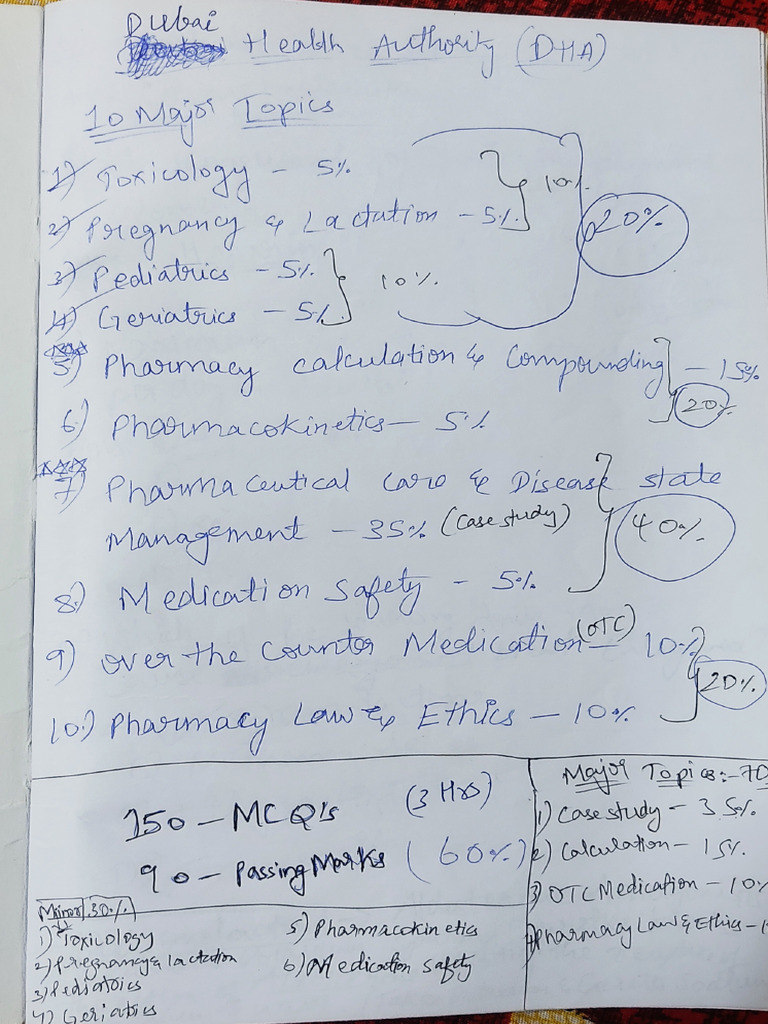 Dubai
Health Authority (DHA)
10 Major Topics
1) Toxicology - 5%
10%
2) Pregnancy & Lactation - 5%
20%
3) Pediatrics - 5%
10%
4) Geriatrics - 5%
5) Pharmacy calculation & Compounding - 15%
20%
6) Pharmacokinetics - 5%
7) Pharmaceutical care & Disease state
Management - 35% (Case study)
40%
8) Medication Safety - 5%
9) over the counter Medication (OTC) - 10%
20%
10.) Pharmacy Law & Ethics - 10%
150 - MCQ's (3 Hrs)
90 - Passing Marks (60%)
Major Topics:- 70
1) Case study - 35%
2) Calculation - 15%
3) OTC Medication - 10%
Pharmacy Law & Ethics - 1
Minor 30%
1) Toxicology
2) Pregnancy & lactation
3) Pediatrics
4) Geriatics
5) Pharmacokinetics
6) Medication safety